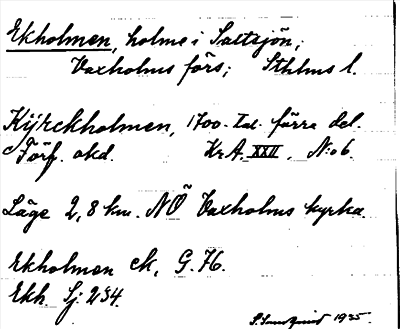 Ekholmen, holme i Saltsjön;
Vaxholms förs; Sthlms l.
Kijrckholmen, 1700-tal. förra del.
Förf. okd. Kr.A. XXII, N:o 6.
Läge 2,8 km. NÖ Vaxholms kyrka.
Ekholmen ek, G. 76.
Ekh. Sj: 234.
1935.